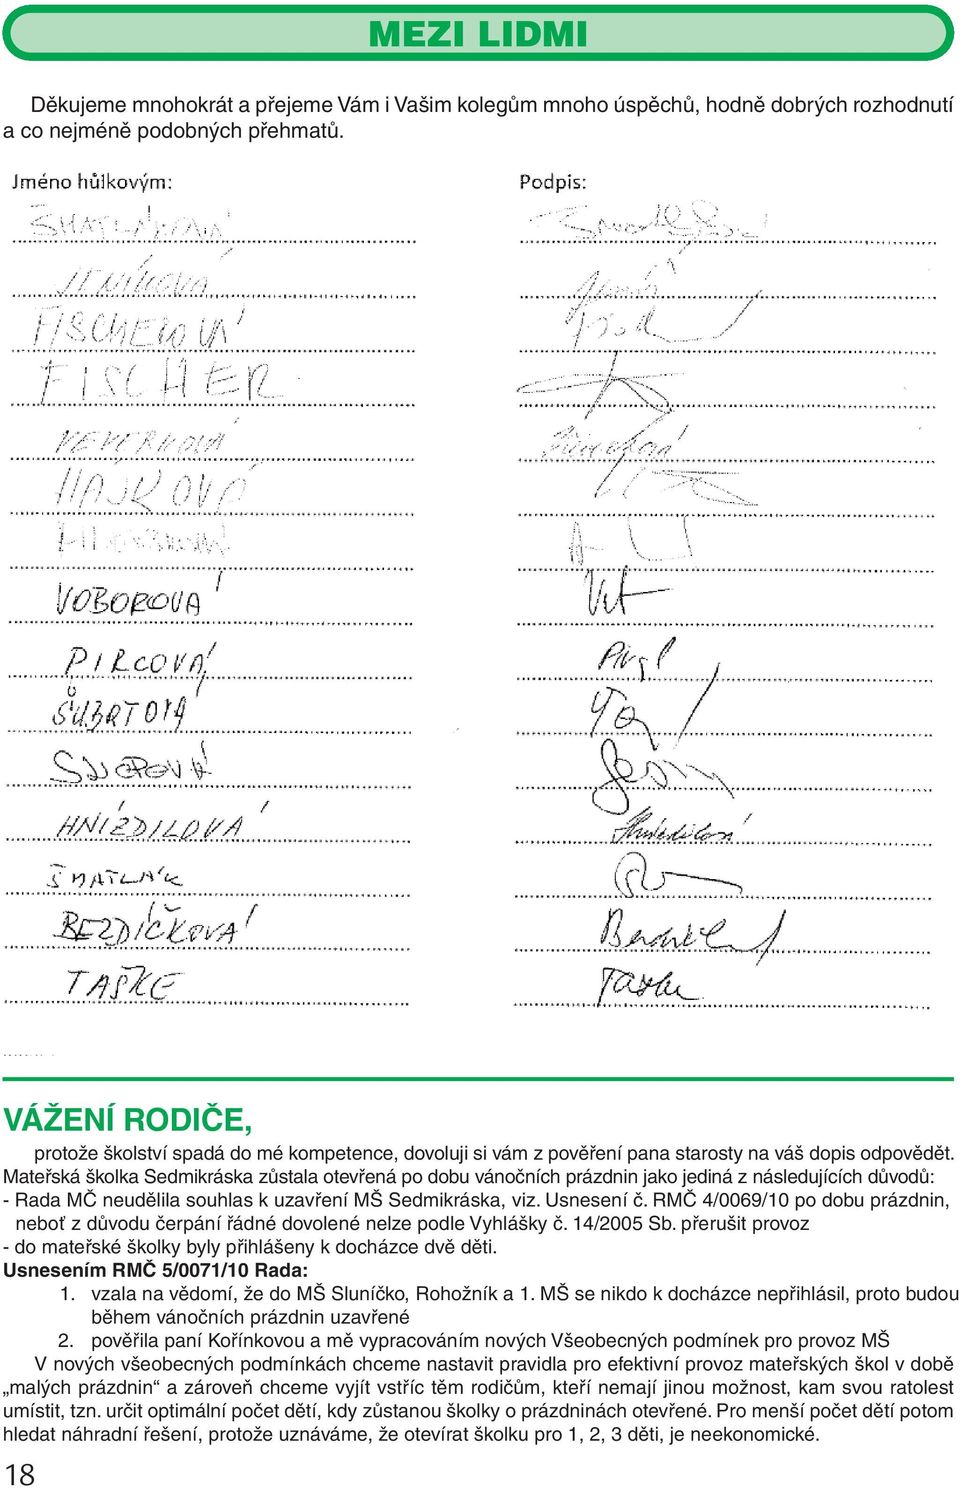 MEZI LIDMI
Děkujeme mnohokrát a přejeme Vám i Vašim kolegům mnoho úspěchů, hodně dobrých rozhodnutí
a co nejméně podobných přehmatů.
Jméno hůlkovým: Podpis:
ŠMATLÁKOVÁ
JENÍKOVÁ
FISCHEROVÁ
FISCHER
VEVERKOVÁ
HÁJKOVÁ
VOBOROVÁ
PIRCOVÁ
ŠŮBRTOVÁ
HNÍZDILOVÁ Hnízdilová
ŠMATLÁK
BEZDÍČKOVÁ
TAŠKE
VÁŽENÍ RODIČE,
protože školství spadá do mé kompetence, dovoluji si vám z pověření pana starosty na váš dopis odpovědět.
Mateřská školka Sedmikráska zůstala otevřená po dobu vánočních prázdnin jako jediná z následujících důvodů:
- Rada MČ neudělila souhlas k uzavření MŠ Sedmikráska, viz. Usnesení č. RMČ 4/0069/10 po dobu prázdnin,
neboť z důvodu čerpání řádné dovolené nelze podle Vyhlášky č. 14/2005 Sb. přerušit provoz
- do mateřské školky byly přihlášeny k docházce dvě děti.
Usnesením RMČ 5/0071/10 Rada:
1. vzala na vědomí, že do MŠ Sluníčko, Rohožník a 1. MŠ se nikdo k docházce nepřihlásil, proto budou
během vánočních prázdnin uzavřené
2. pověřila paní Kořínkovou a mě vypracováním nových Všeobecných podmínek pro provoz MŠ
V nových všeobecných podmínkách chceme nastavit pravidla pro efektivní provoz mateřských škol v době
„malých prázdnin“ a zároveň chceme vyjít vstříc těm rodičům, kteří nemají jinou možnost, kam svou ratolest
umístit, tzn. určit optimální počet dětí, kdy zůstanou školky o prázdninách otevřené. Pro menší počet dětí potom
hledat náhradní řešení, protože uznáváme, že otevírat školku pro 1, 2, 3 děti, je neekonomické.
18